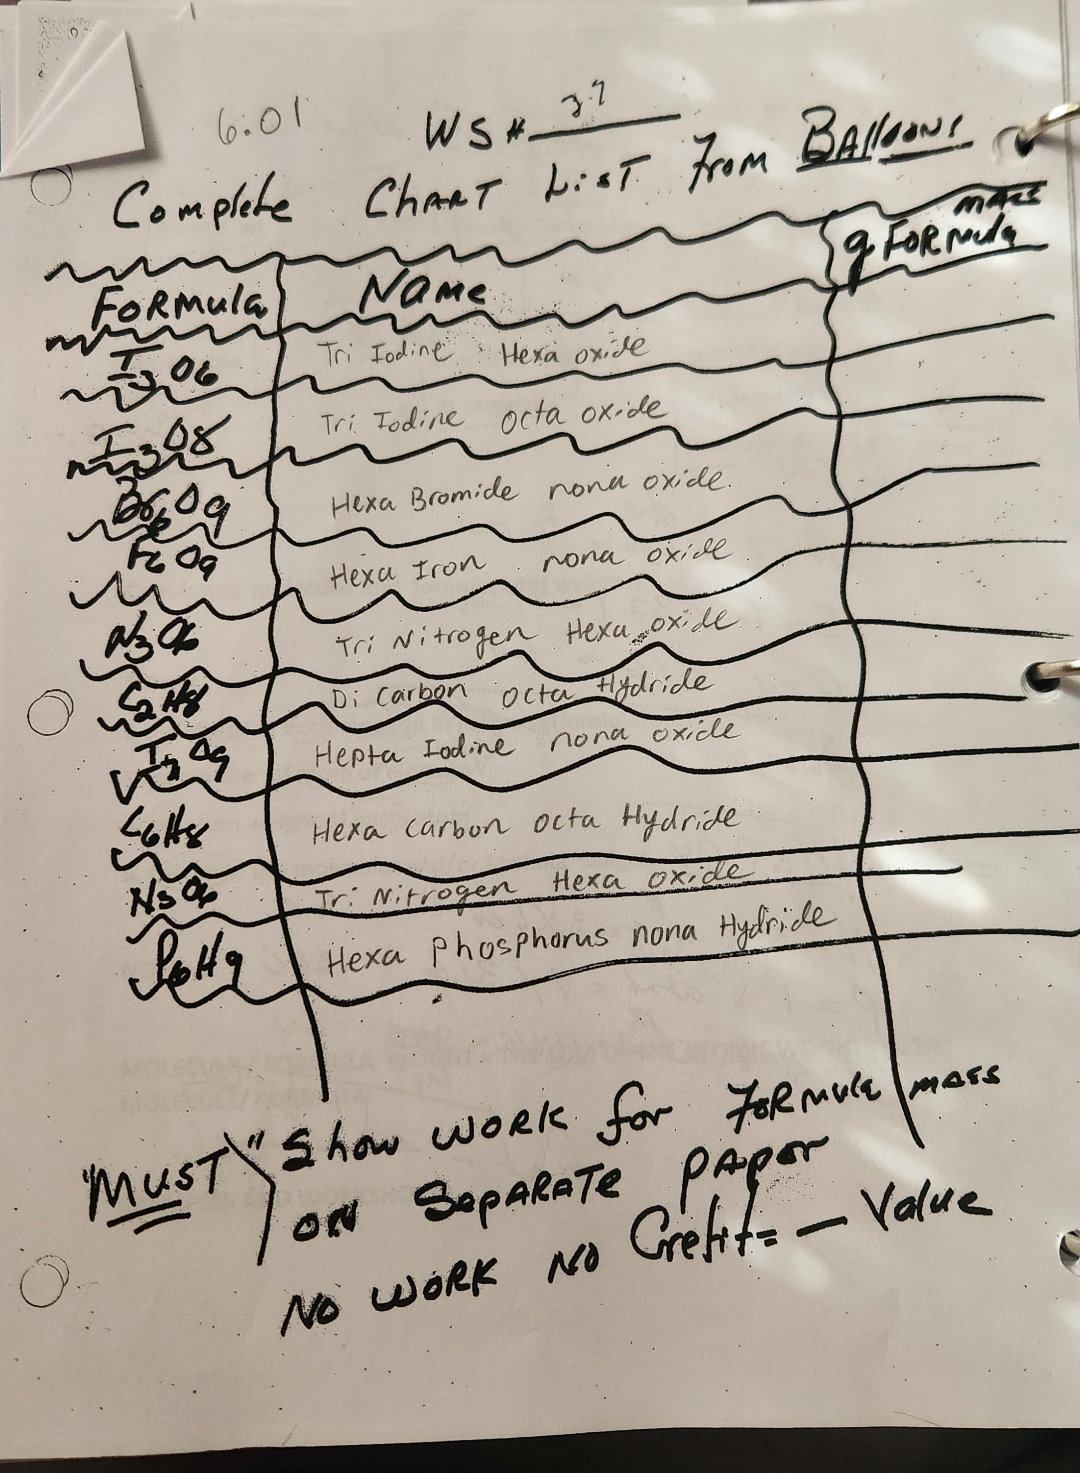 6:01
WS # 37
Complete Chart List From Balloons
Formula Name g Formula mass
I3O6 Tri Iodine Hexa oxide
I3O8 Tri Iodine octa oxide
Br6O9 Hexa Bromide nona oxide.
Fe6O9 Hexa Iron nona oxide
N3O6 Tri Nitrogen Hexa oxide
C2H8 Di Carbon octa Hydride
I7O9 Hepta Iodine nona oxide
C6H8 Hexa Carbon octa Hydride
N3O6 Tri Nitrogen Hexa oxide
P6H9 Hexa phosphorus nona Hydride
"MUST" Show work for Formula mass
on Separate paper
No work No Credit = — Value